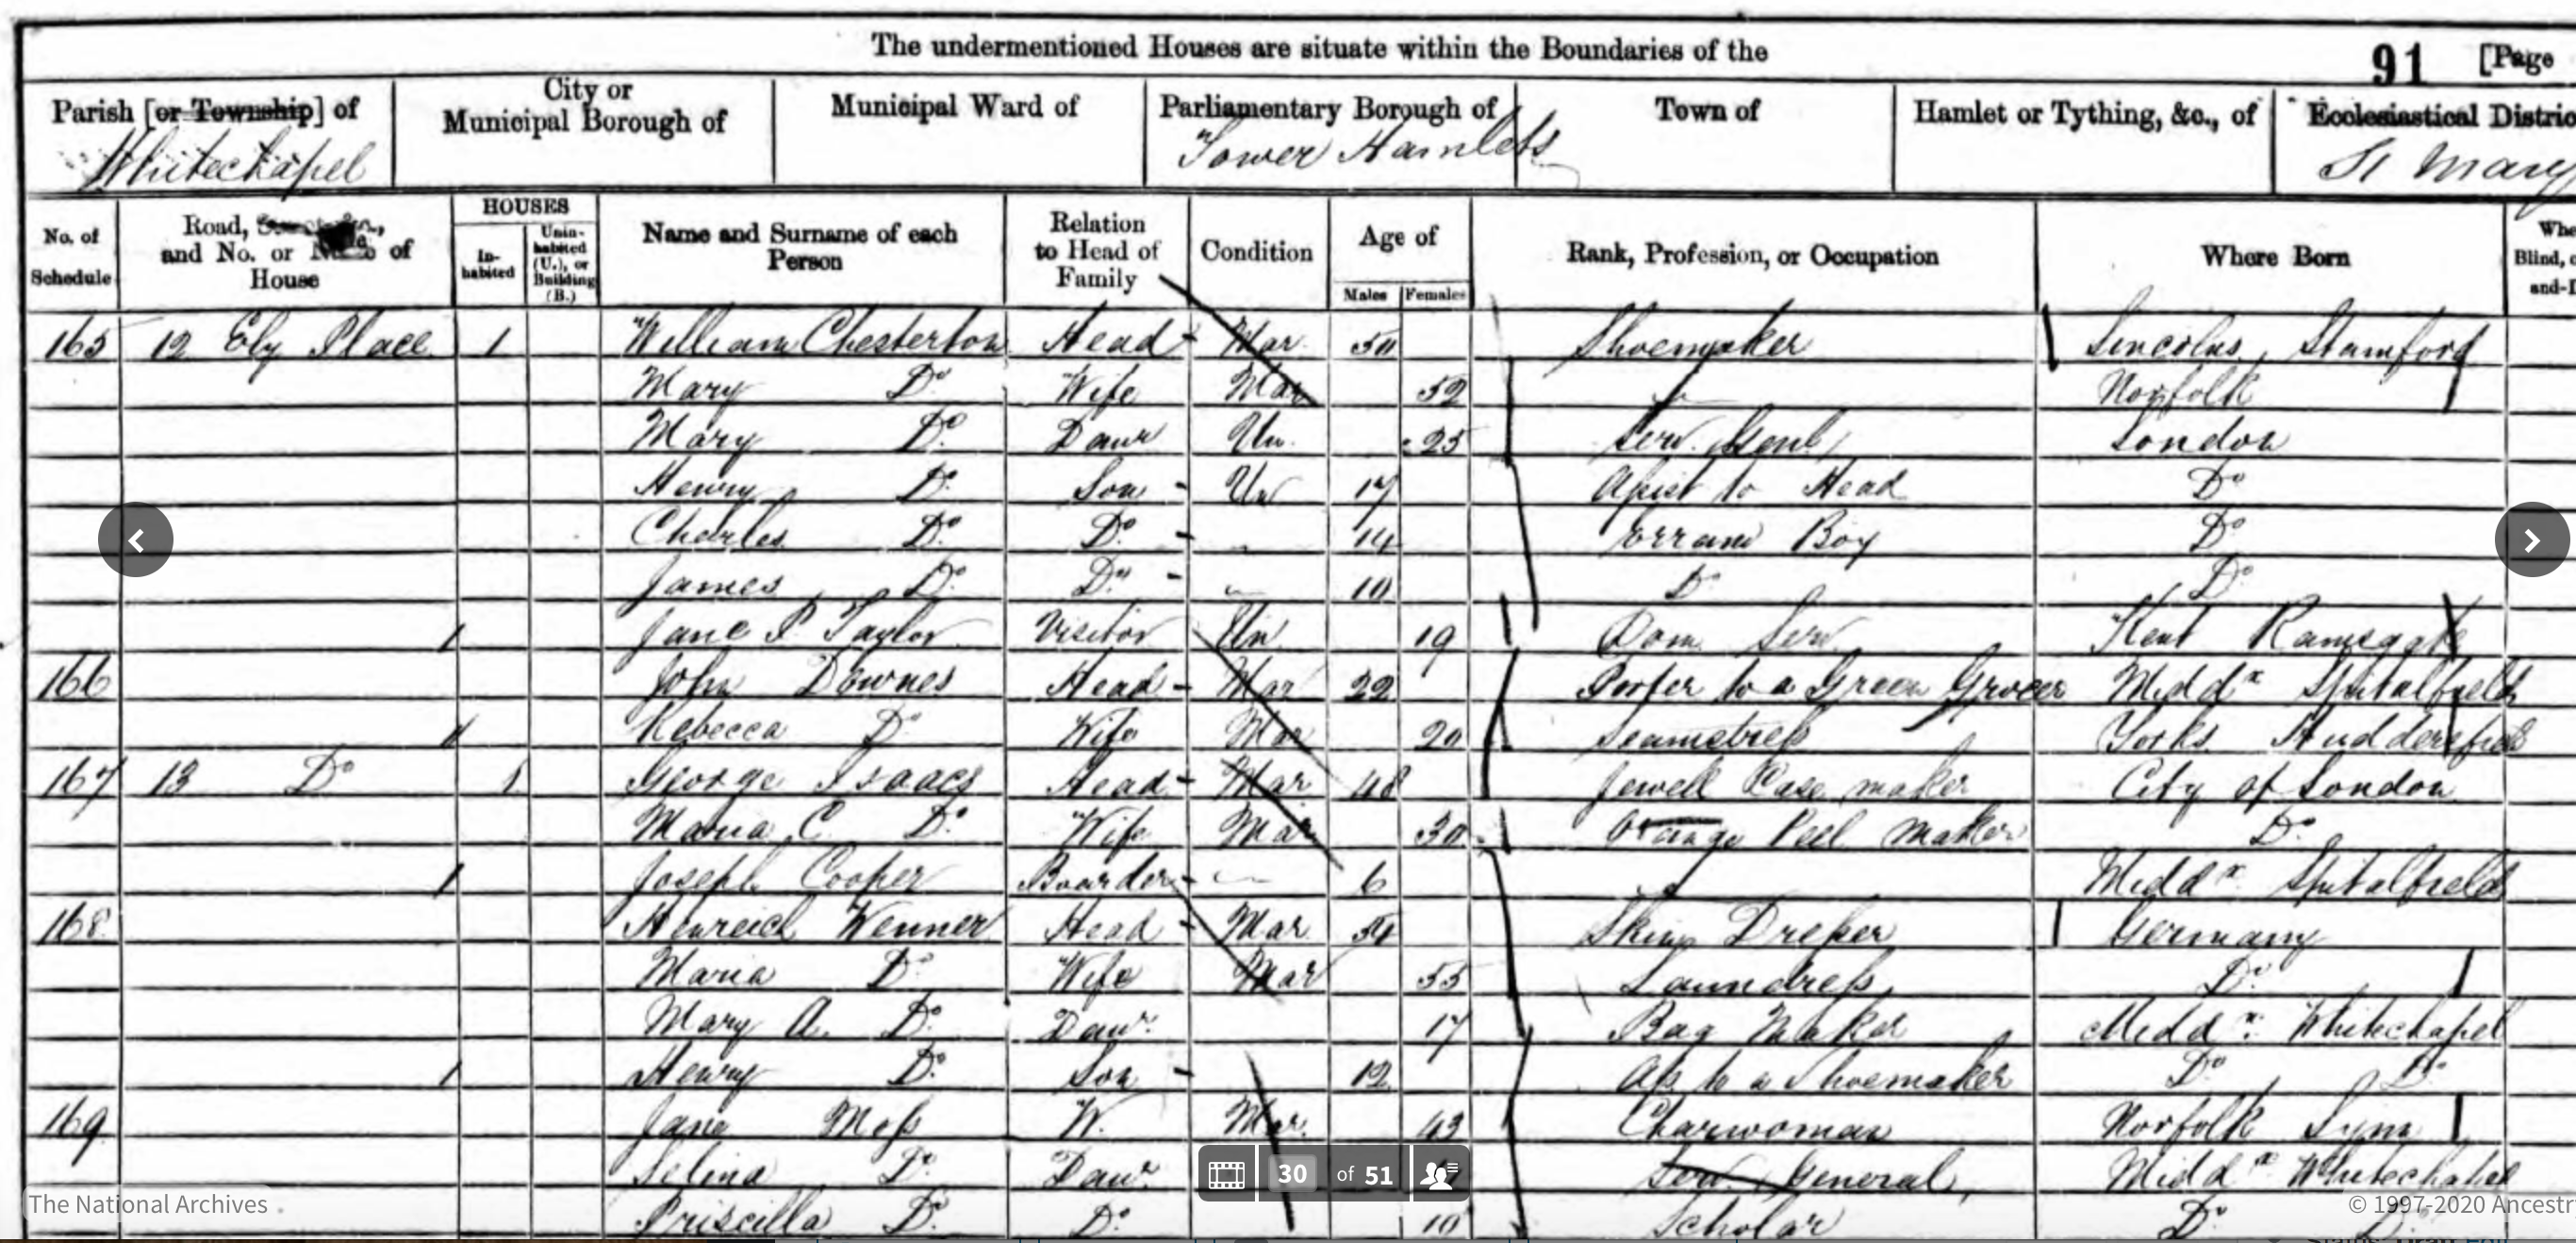 The undermentioned Houses are situate within the Boundaries of the
91 [Page
Parish [or Township] of Whitechapel
City or Municipal Borough of
Municipal Ward of
Parliamentary Borough of Tower Hamlets
Town of
Hamlet or Tything, &c., of
Ecclesiastical Distric St Mary
No. of Schedule
Road, and No. or Name of House
HOUSES
In-habited
Unin-habited (U.), or Building (B.)
Name and Surname of each Person
Relation to Head of Family
Condition
Age of
Males Females
Rank, Profession, or Occupation
Where Born
Whe
Blind,
and-D
165 12 Ely Place 1 William Chesterton Head Mar 50 Shoemaker Lincolns, Stamford
Mary Do Wife Mar 52 Norfolk
Mary Do Daur Un 25 Serv. Genl London
Henry Do Son Un 17 Asist to Head Do
Charles Do Do 14 Erran Boy Do
James Do Do 10 Do Do
Jane P. Taylor Visitor Un 19 Dom Serv Kent Ramsgate
166 John Downes Head Mar 22 Porter to a Green Grocer Middx Spitalfields
Rebecca Do Wife Mar 20 Seamstress Yorks Huddersfield
167 13 Do 1 George Isaacs Head Mar 48 Jewell Case maker City of London
Maria C. Do Wife Mar 30 Orange Peel Maker Do
Joseph Cooper Boarder 6 Middx Spitalfields
168 Henreich Wenner Head Mar Skin Dresser Germany
Maria Do Wife Mar 55 Laundress Do
Mary A. Do Daur 17 Bag Maker Middx Whitechapel
Henry Do Son 12 Ap to a Shoemaker Do Do
169 Jane Moss W. Mar. 43 Charwoman Norfolk Lynn
Selina Do Daur General Middx Whitechapel
Priscilla Do Do 10 Scholar Do Do
30 of 51
The National Archives
© 1997-2020 Ancestr